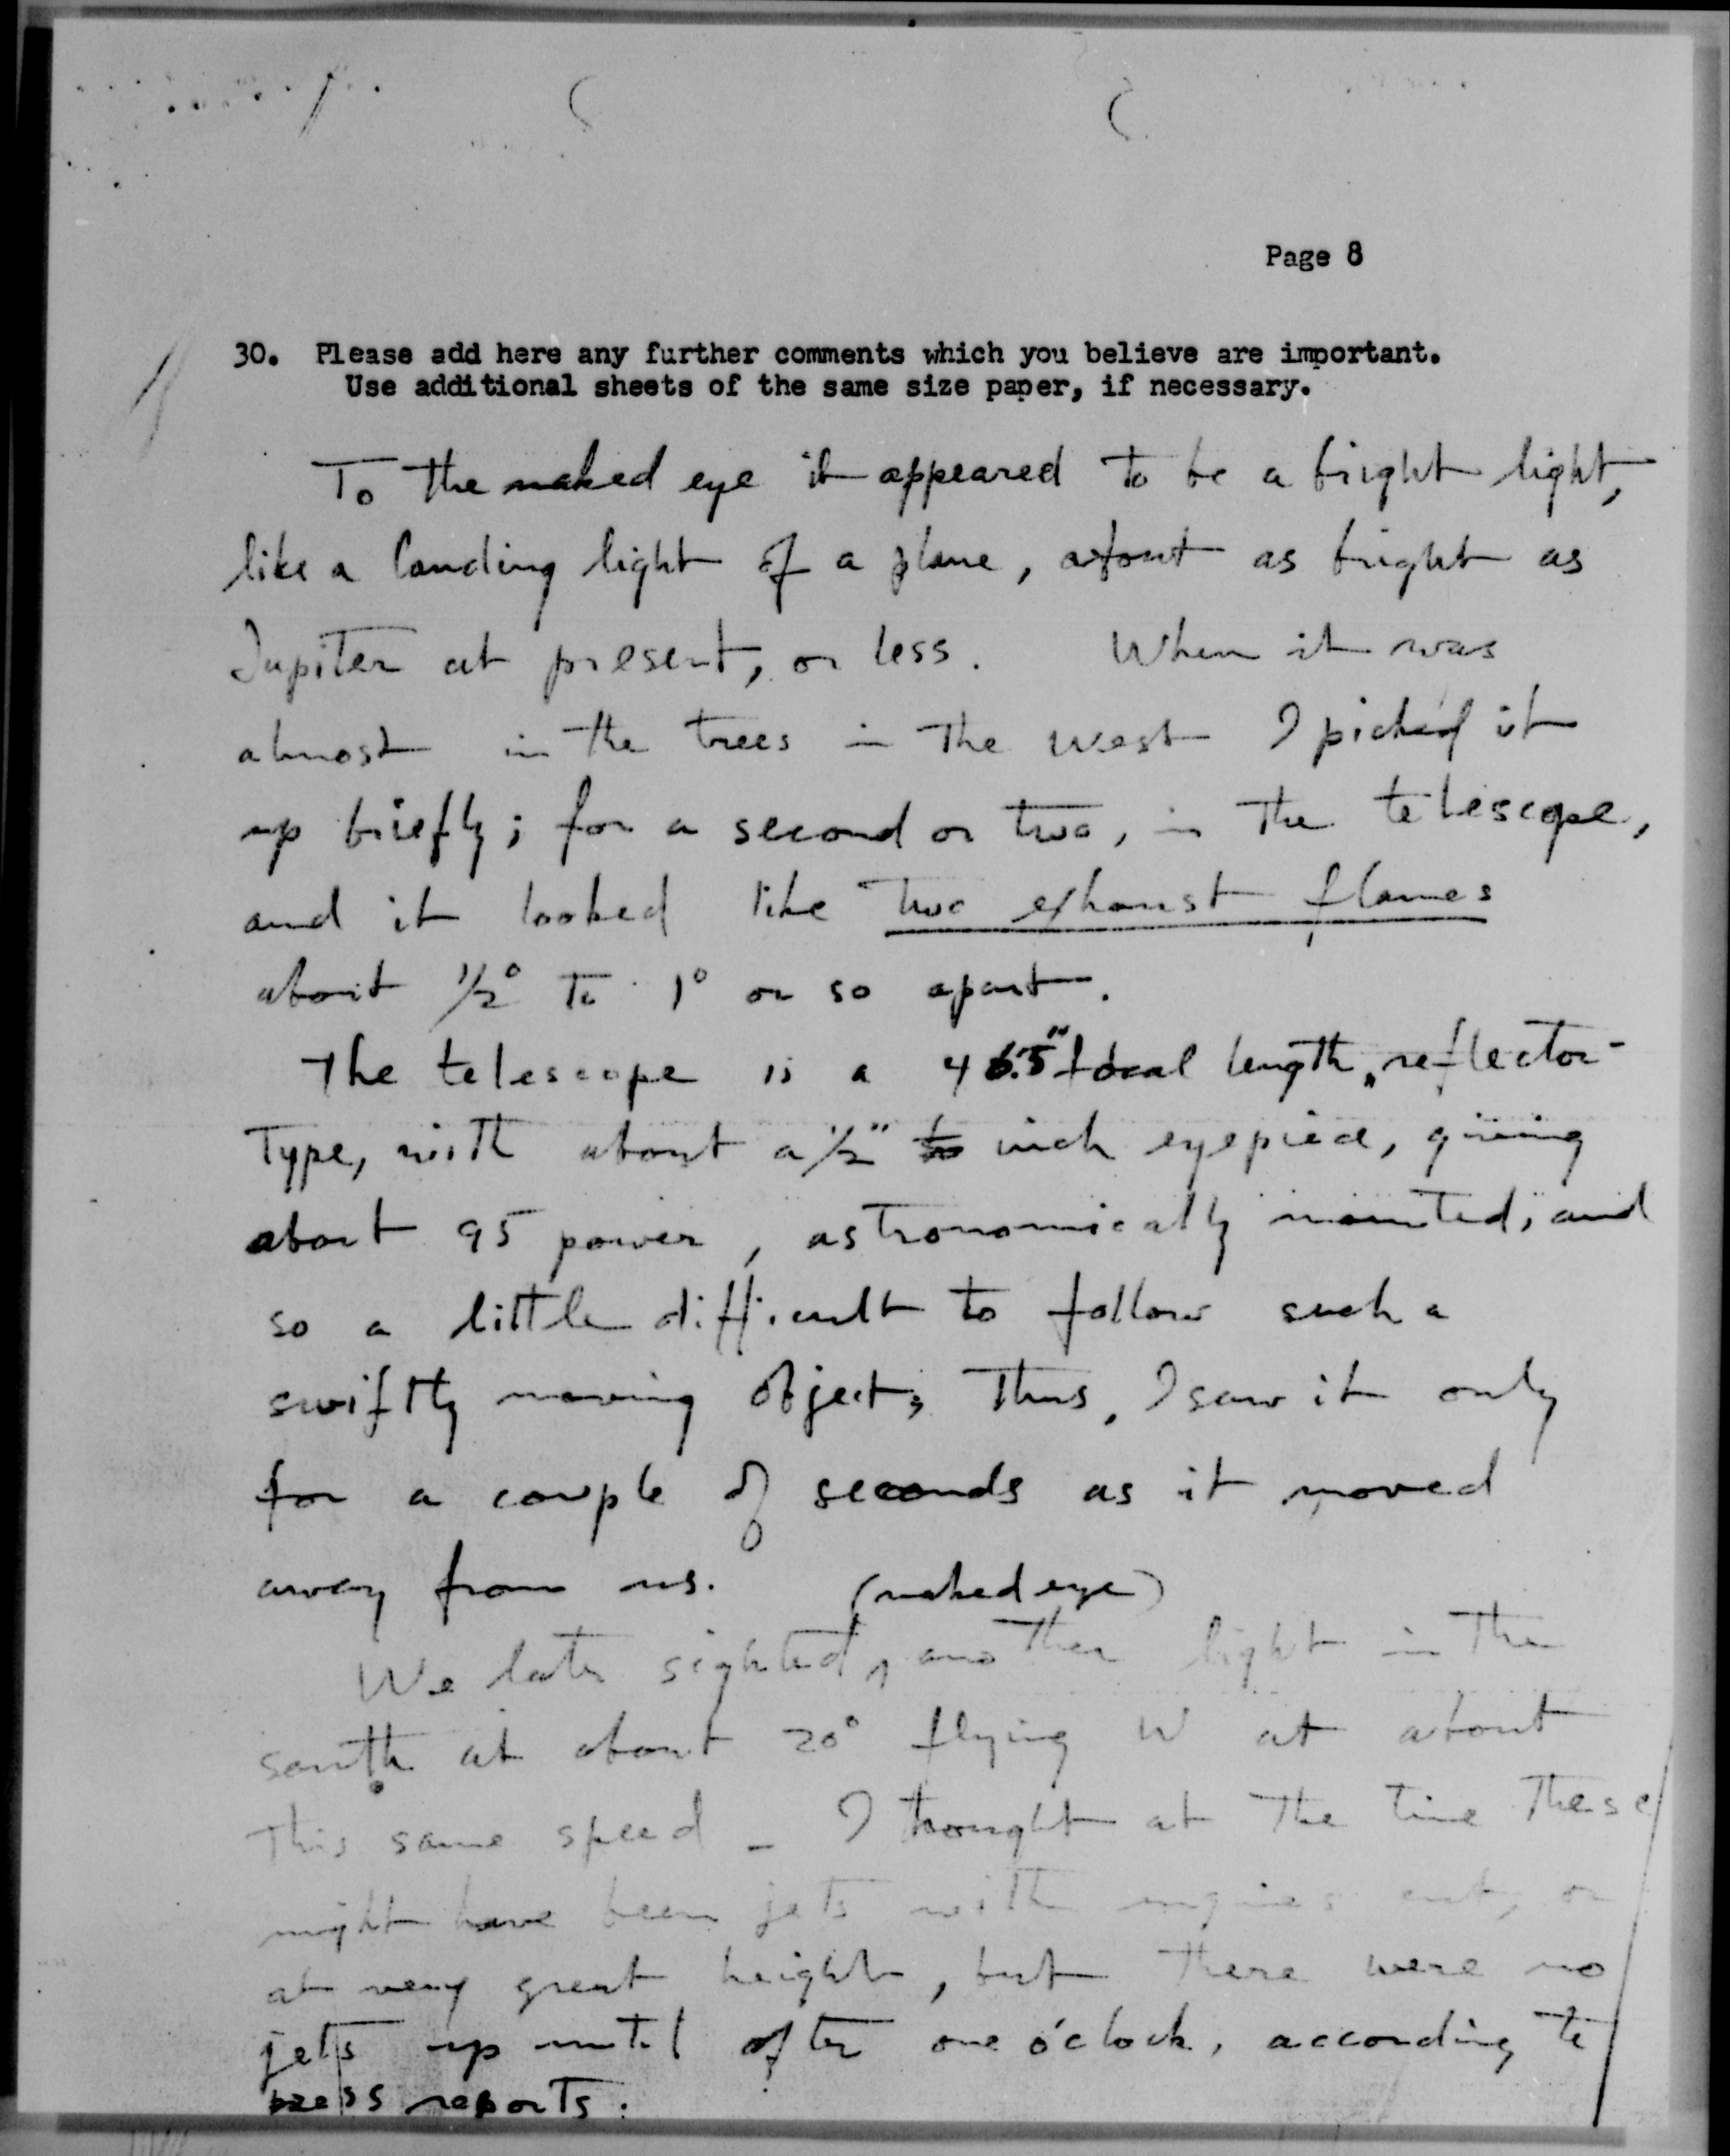 Page 8
30. Please add here any further comments which you believe are important.
Use additional sheets of the same size paper, if necessary.
To the naked eye it appeared to be a bright light,
like a landing light of a plane, about as bright as
Jupiter at present, or less. When it was
almost in the trees in the west I picked it
up briefly; for a second or two, in the telescope,
and it looked like two exhaust flames
about 1/2° to 1° or so apart.
The telescope is a focal length, reflector-
type, with about a 1/2" inch eyepiece, giving
about 95 power, astronomically mounted, and
so a little difficult to follow such a
swiftly moving object; Thus, I saw it only
for a couple of seconds as it moved
away from us. (naked eye)
We later sighted another light in the
south at about 20° flying W at about
this same speed - I thought at the time these
might have been jets with engines cut, or
at very great height, but there were no
jets up until after one o'clock, according to
press reports.